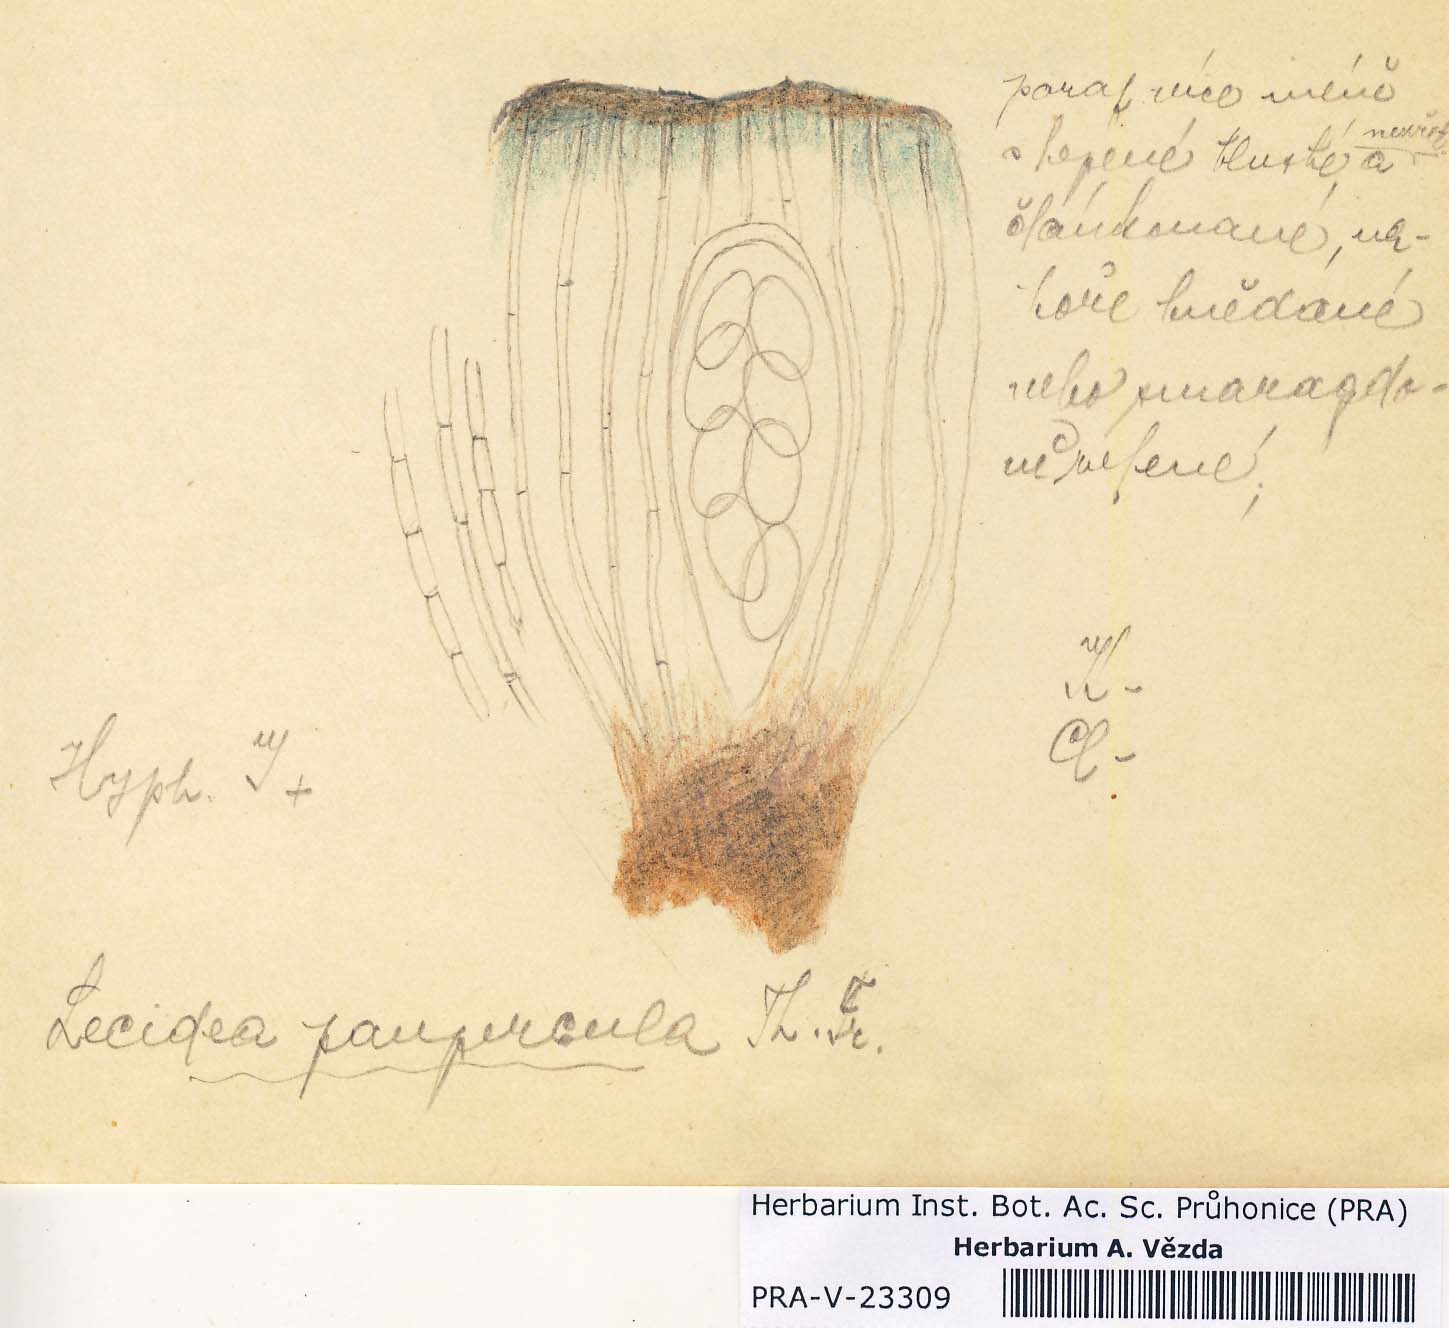 paraf. více méně
slepené tlusté a nevětv.
článkované, na-
hoře hnědavé
nebo smaragdo-
vě zelené;
K -
Cl -
Hyph. J +
Lecidea paupercula Th. Fr.
Herbarium Inst. Bot. Ac. Sc. Průhonice (PRA)
Herbarium A. Vězda
PRA-V-23309